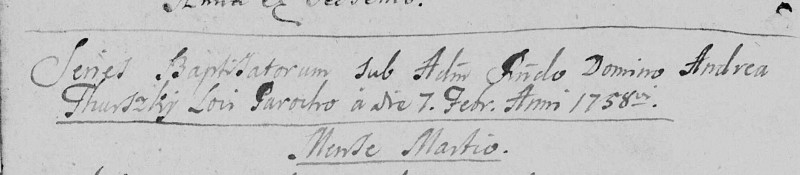 Series Baptisatorum sub Adm̃ Rñdo Domino Andrea
Thurszky Loci Parocho à die 7. Febr. Anni 1758vi.
Mense Martio.